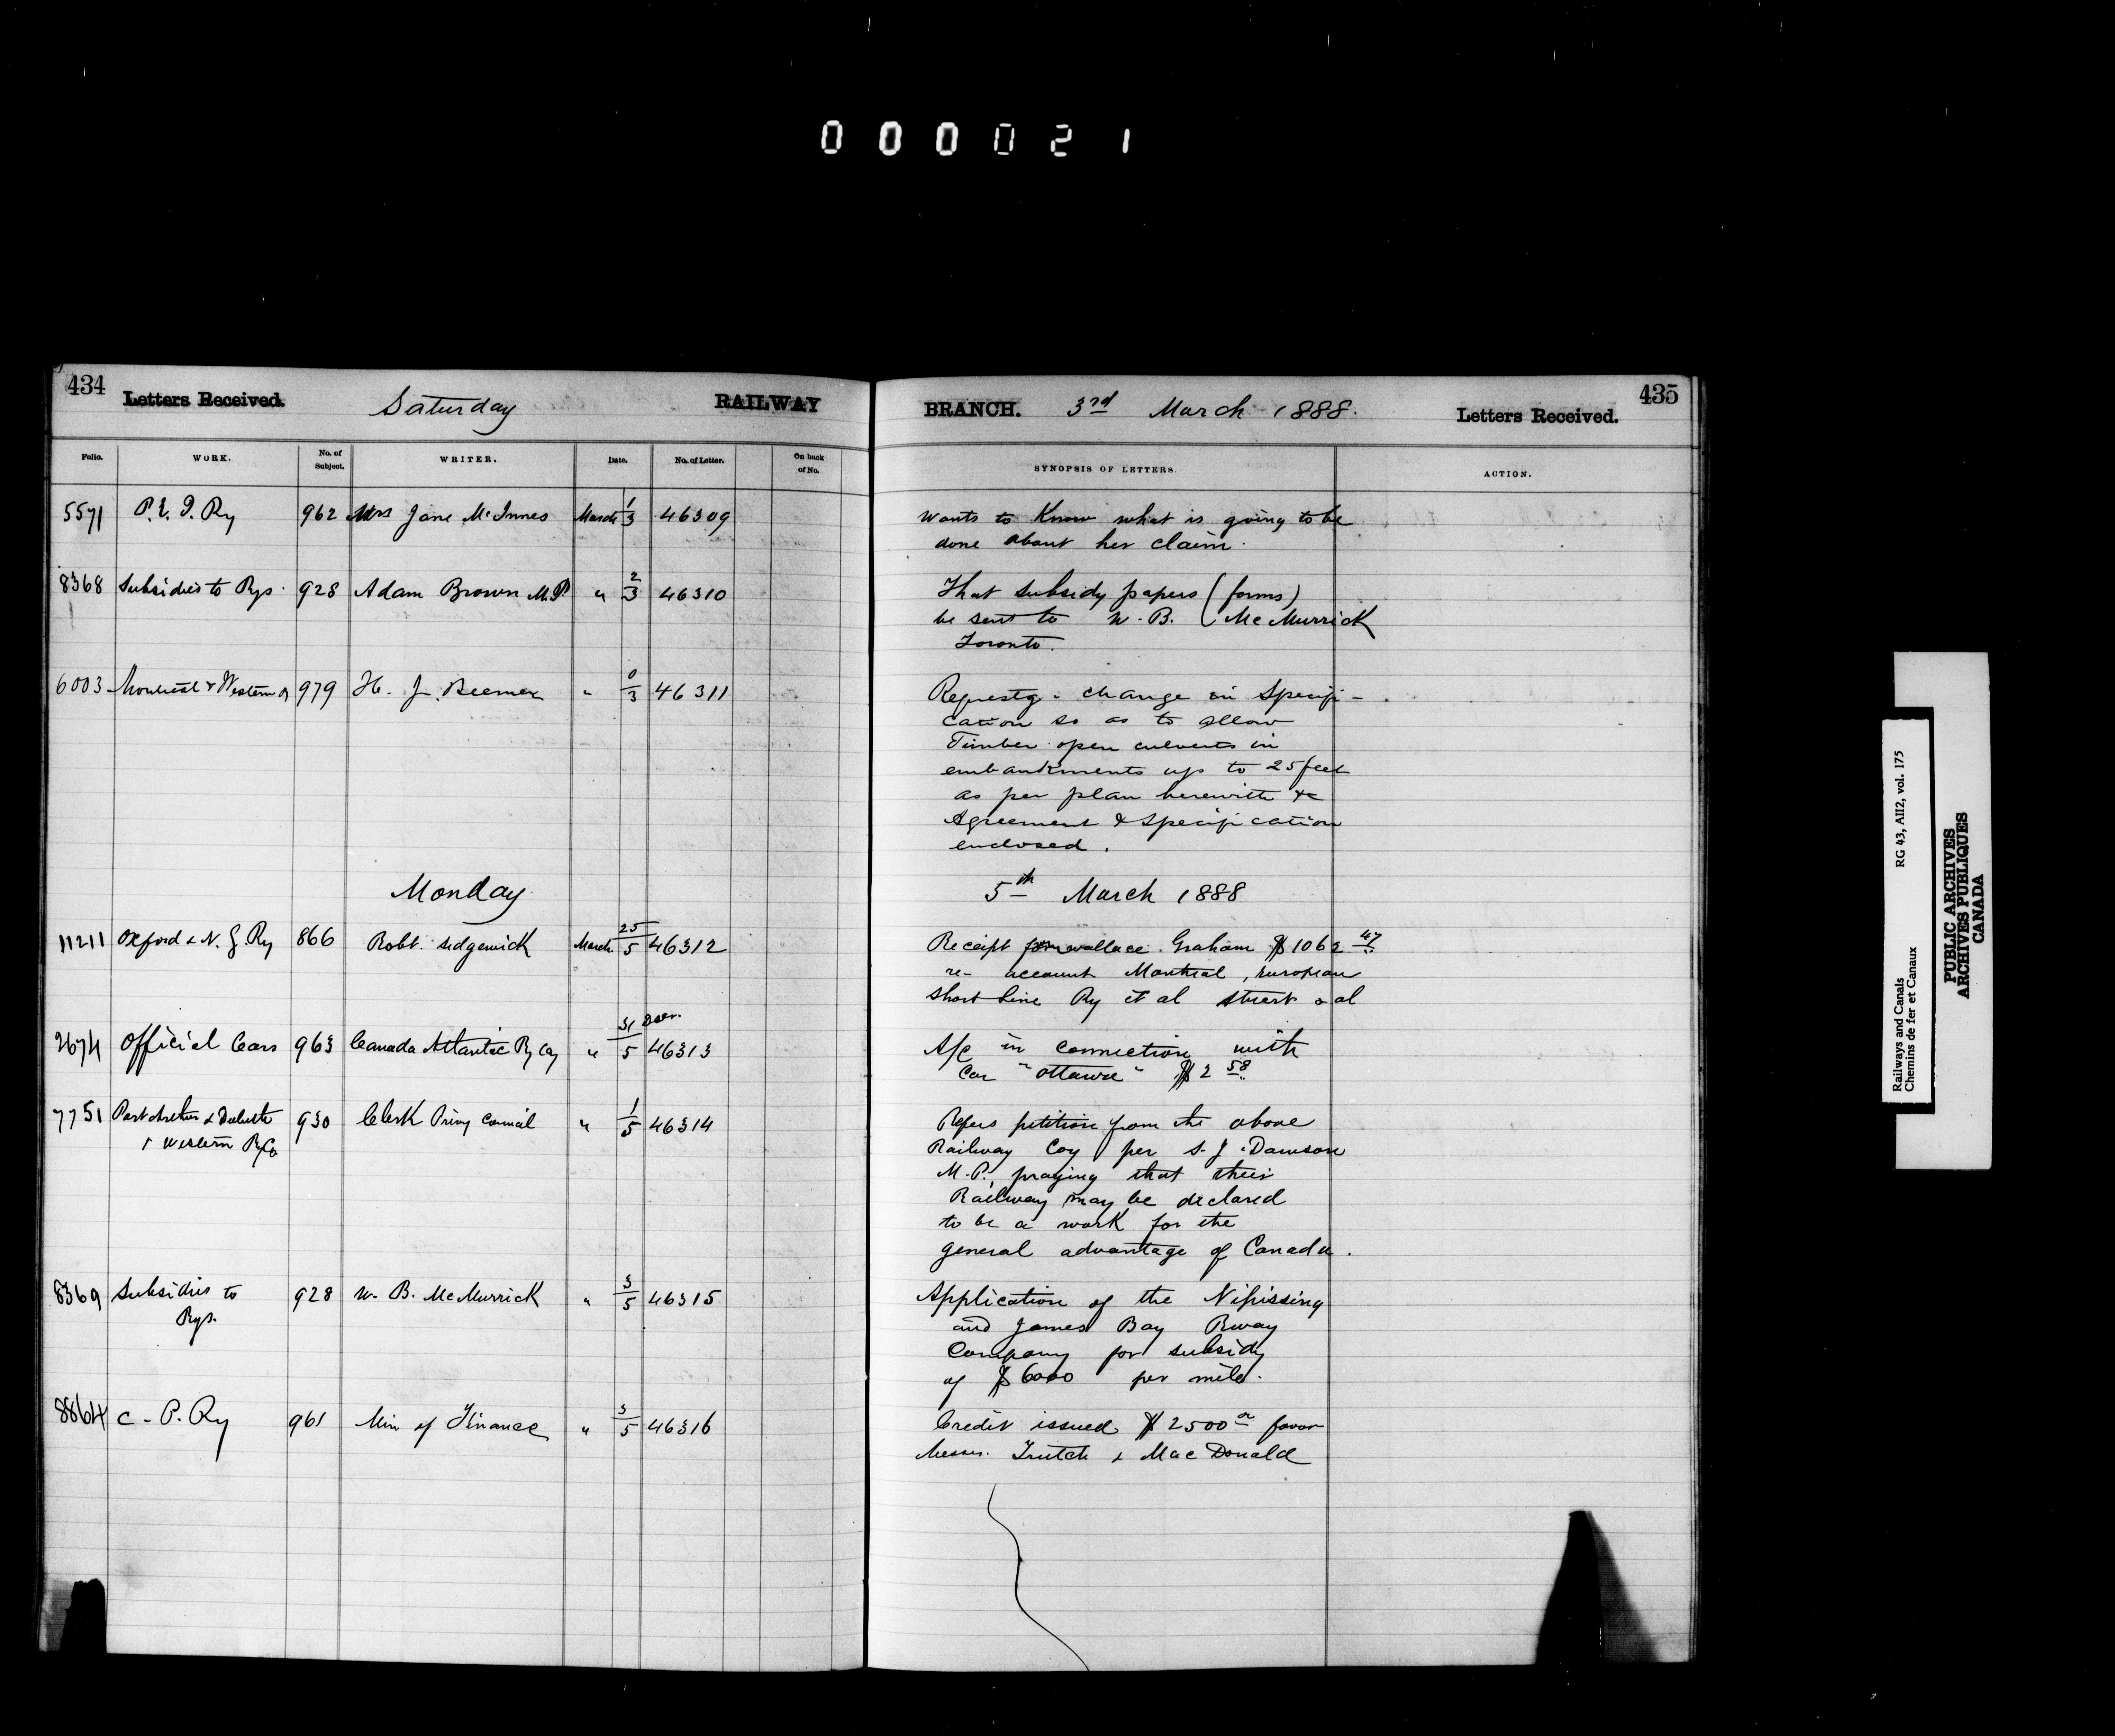 000021
434 Letters Received. Saturday RAILWAY
BRANCH. 3rd March 1888. Letters Received. 435
Folio. WORK. No. of Subject. WRITER. Date. No. of Letter. On back of No.
SYNOPSIS OF LETTERS. ACTION.
5571 P.E.I. Ry 962 Mrs Jane McInnes March 1/3 46309
Wants to Know what is going to be
done about her claim.
8368 Subsidies to Rys. 928 Adam Brown M.P. " 2/3 46310
That subsidy papers (forms)
be sent to W. B. McMurrick
Toronto.
6003 Montreal & Western Ry 979 H. J. Beemer " 0/3 46311
Requestg. change in Specifi-
cation so as to allow
Timber open culverts in
embankments up to 25 feet
as per plan herewith &c
Agreement & Specification
enclosed.
Monday 5th March 1888
11211 Oxford & N. G. Ry 866 Robt. Sedgewick March 25/5 46312
Receipt from Wallace Graham $1062 47
re- account Montreal, European
Short Line Ry et al Stuart & al
2674 Official Cars 963 Canada Atlantic Ry Coy " 31 Decr./5 46313
A/c in connection with
Car "Ottawa" $2 58
7751 Port Arthur & Duluth 930 Clerk Privy Council " 1/5 46314
& Western Ry Co
Refers petition from the above
Railway Coy per S. J. Dawson
M.P., praying that their
Railway may be declared
to be a work for the
general advantage of Canada.
8369 Subsidies to 928 W. B. McMurrick " 3/5 46315
Rys.
Application of the Nipissing
and James Bay Rway
Company for subsidy
of $6000 per mile.
8864 C. P. Ry 961 Min of Finance " 3/5 46316
Credit issued $2500 00 favor
Messrs. Trutch & MacDonald
Railways and Canals RG 43, AII2, vol. 175
Chemins de fer et Canaux
PUBLIC ARCHIVES
ARCHIVES PUBLIQUES
CANADA